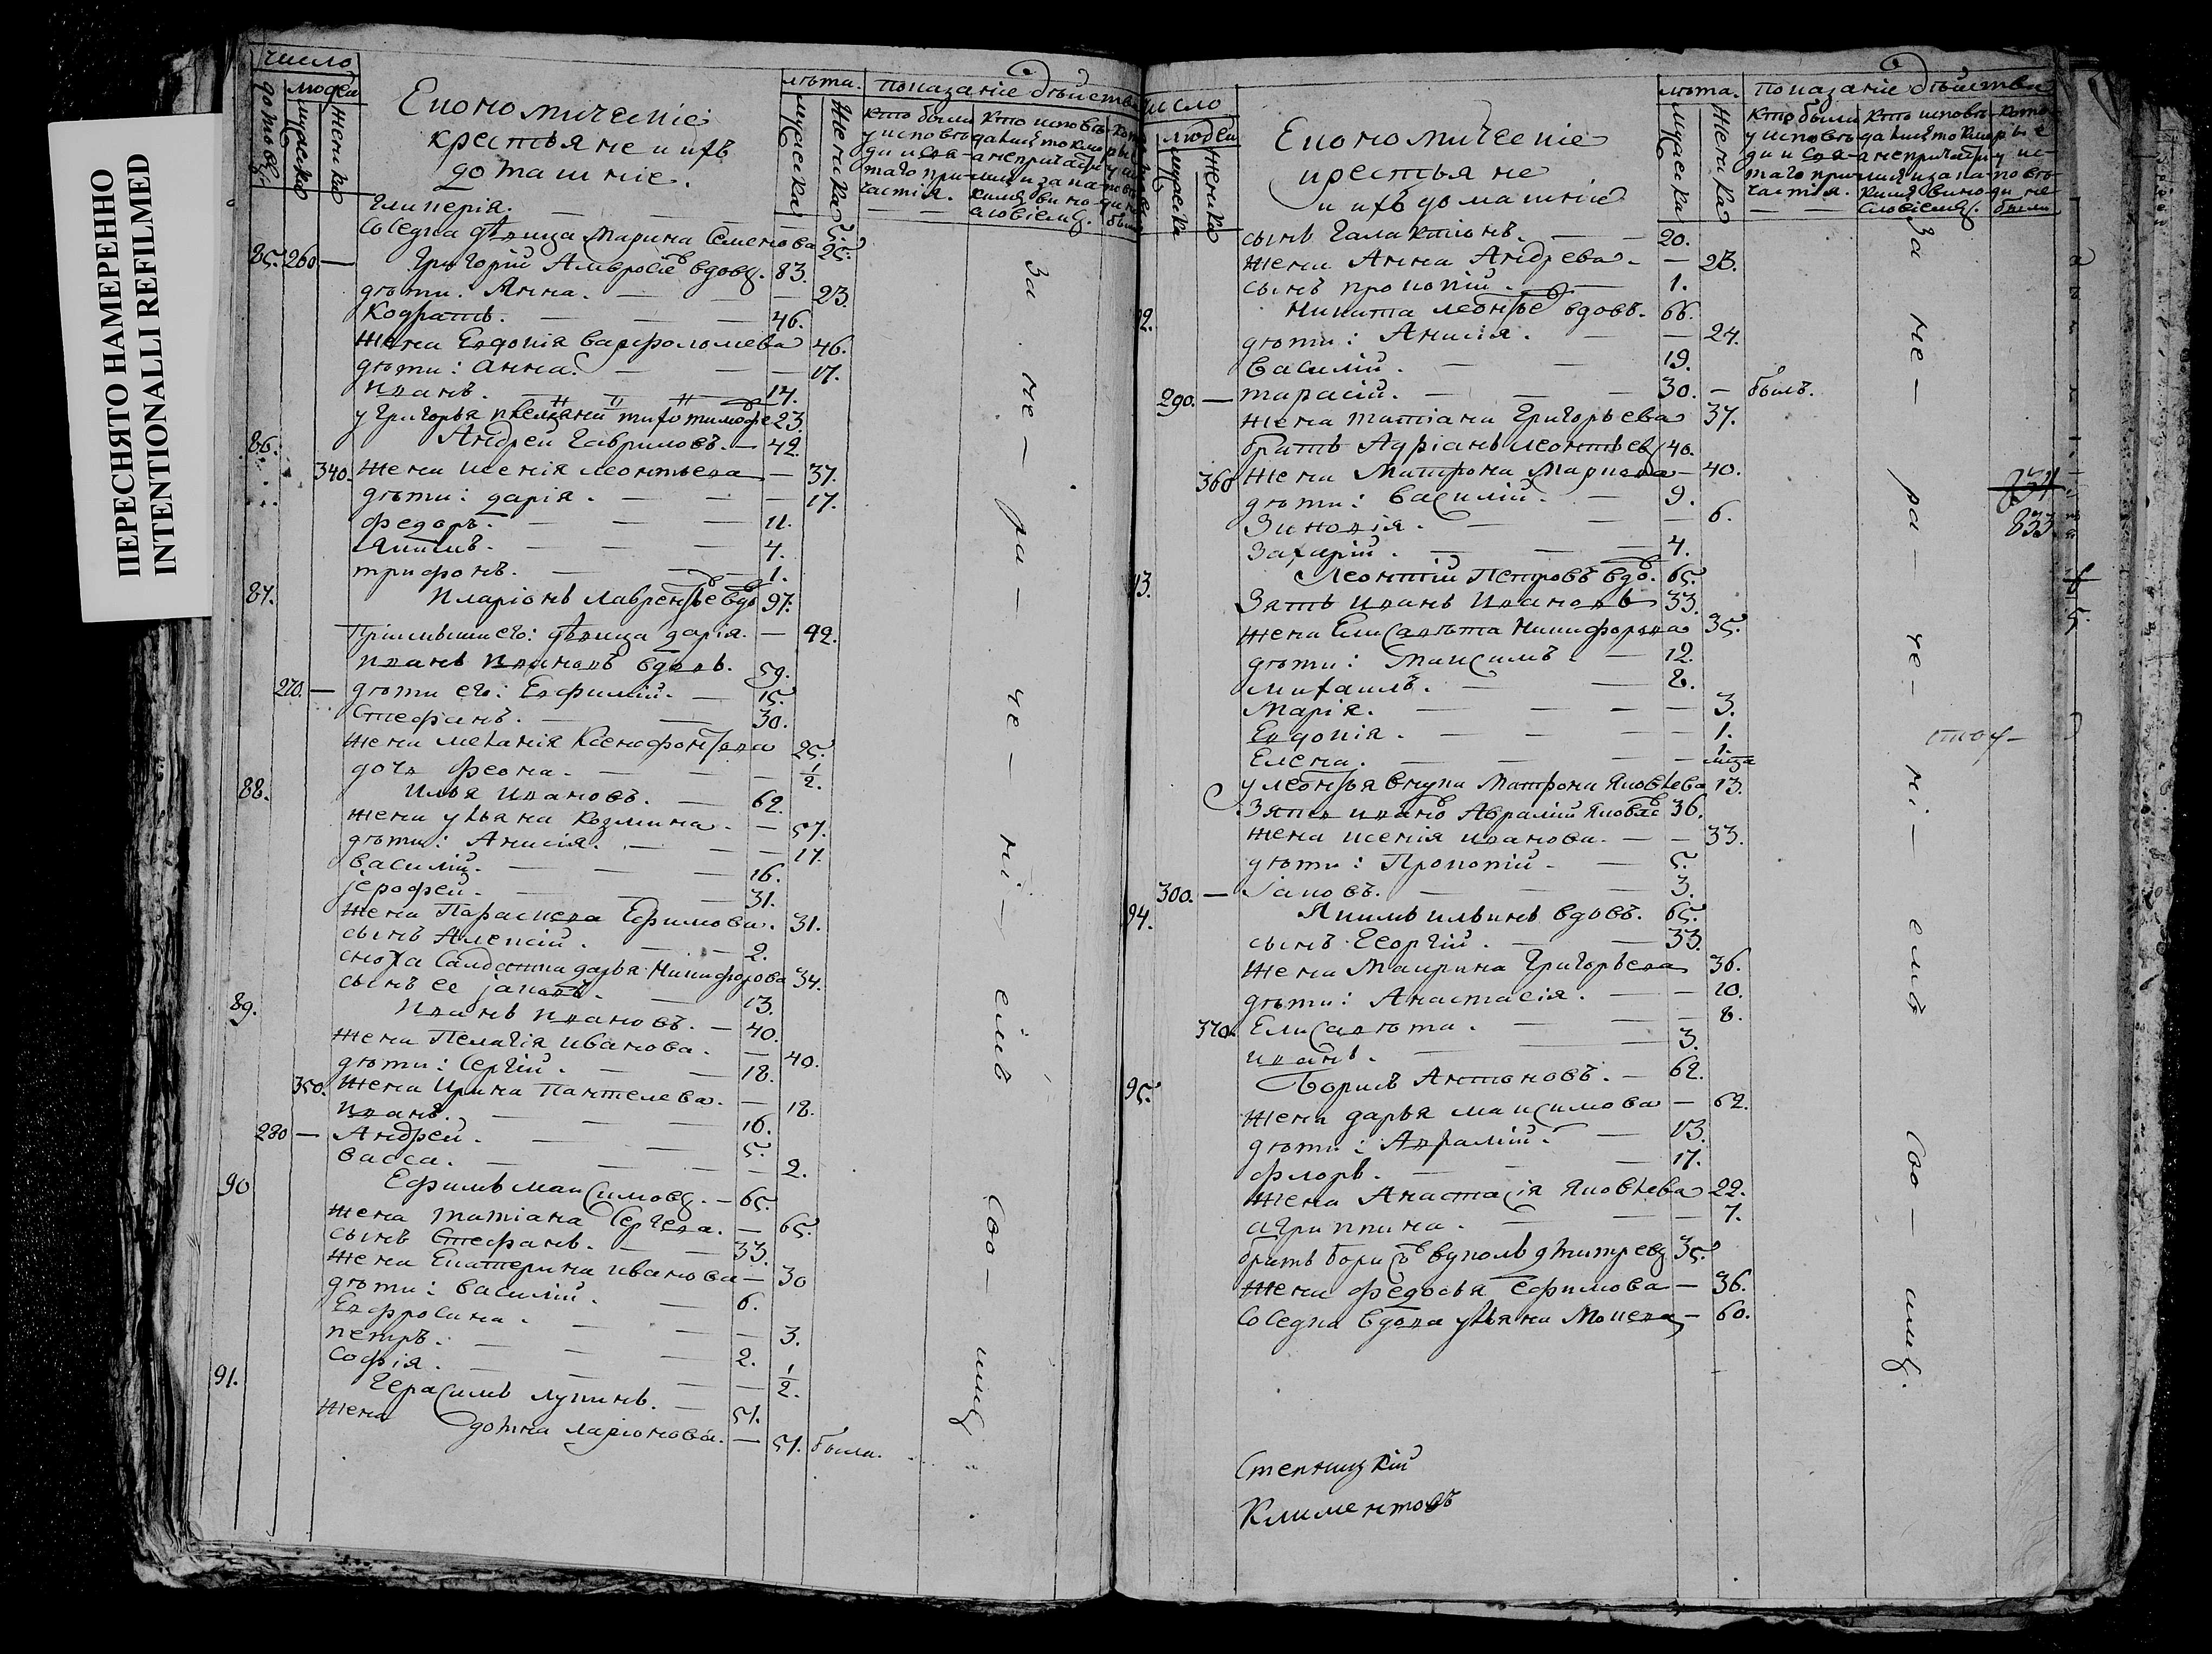 ПЕРЕСНЯТО НАМЕРЕННО
INTENTIONALLI REFILMED
число
домовъ
людей
мужеска
женска
Економическіе
крестьяне и ихъ
домашніе.
лѣта.
мужеска
женска
показаніе дѣйства
кто были
у исповѣ-
ди и свя-
таго при-
частія.
кто исповѣ-
дались токмо
а не причасти-
лись и за ка-
кимъ вино-
словіемъ.
Гликерія. — 5.
Соседка дѣвица Марина Семенова 25.
85. 260. — Григорій Амвросіевъ вдовъ. 83.
дѣти. Анна. — 23.
Кодратъ. — 46.
жена Евдокія Варфоломева 46.
дѣти: Анна. — 17.
Иванъ. — 14.
у Григорья 23.
86. Андрей Гавриловъ. — 42.
340. жена Ксенія Леонтьева — 37.
дѣти: Дарія. — 17.
Федоръ. — 11.
Якимъ. — 4.
Трифонъ. — 1.
87. Иларіонъ Лаврентьевъ вдо 97.
Пріимыши его: дѣвица Дарія. — 42.
Иванъ Ивановъ вдовъ. 59.
270. — дѣти его: Евфимій. — 15.
Стефанъ. — 30.
жена Меланія Ксенофонтова 25.
дочь Феона. — 1/2.
88. Илья Ивановъ. — 62.
жена Ульяна Козмина. — 57.
дѣти: Анисія. — 17.
Василій. — 16.
Іерофей. — 31.
жена Параскева Ефимова. 31.
сынъ Алексій. — 2.
сноха Салдатка Дарья Никифорова 34.
сынъ ее Іаковъ. — 13.
89. Иванъ Ивановъ. — 40.
жена Пелагія Иванова. — 40.
дѣти: Сергій. — 18.
350. жена Ирина Пантелева. — 18.
Иванъ. — 16.
280 — Андрей. — 5.
Васса. — 2.
90 Ефимъ Максимовъ. — 65.
жена Татіана Сергева. — 65.
сынъ Стефанъ. — 33.
жена Екатерина Иванова — 30
дѣти: Василій. — 6.
Евфросина. — 3.
Петръ. — 2.
Софія. — 1/2.
91. Герасимъ Лукинъ. — 51.
жена Домна Ларіонова. — 51. была.
за не-ра-че-ні-емъ со-
число
людей
мужеска
женска
Економическіе
крестьяне
и ихъ домашніе
лѣта.
мужеска
женска
показаніе дѣйства
кто были
у исповѣ-
ди и свя-
таго при-
частія.
кто исповѣ-
дались токмо
а не причасти-
лись и за ка-
кимъ вино-
словіемъ.
кото-
рые
у ис-
повѣ-
ди не
были
сынъ Галактіонъ. — 20.
жена Анна Андрева. — 23.
сынъ Прокопій. — 1.
92. Никита Леонтьевъ вдовъ. 66.
дѣти: Анисія. — 24.
Василій. — 19.
290. — Тарасій. — 30. — былъ.
жена Татіана Григорьева 37.
братъ Адріанъ Леонтьевъ 40.
360 жена Матрона Маркова — 40.
дѣти: Василій. — 9.
Зиновія. — 6.
Захарій. — 4.
93. Леонтій Петровъ вдо. 65.
Зять Иванъ Ивановъ 33.
жена Елисавѣта Никифорова 35.
дѣти: Максимъ. — 12.
Михаилъ. — 8.
Марія. — 3.
Евдокія. — 1.
Елена. — 1.
у Леонтья внука Матрона Яковлева 13.
Зять Аврамій 36.
жена Ксенія Иванова. — 33.
дѣти: Прокопій — 5.
300. — Іаковъ. — 3.
94. Якимъ Ильинъ вдовъ. 65.
сынъ Георгій. — 33.
жена Маврина Григорьева 36.
дѣти: Анастасія. — 10.
370. Елисавѣта. — 8.
Иванъ. — 3.
95. Борисъ Антоновъ. — 62.
жена Дарья Максимова — 62.
дѣти: Аврамій. — 13.
Флоръ. — 17.
жена Анастасія Яковлева 22.
Агриппина. — 7.
братъ Вуколъ Дмитревъ 35.
жена Федосья Ефимова — 36.
Соседка вдова Ульяна Мокева — 60.
за не-ра-че-ні-емъ со-
831
833
Степницкій
Климентовъ